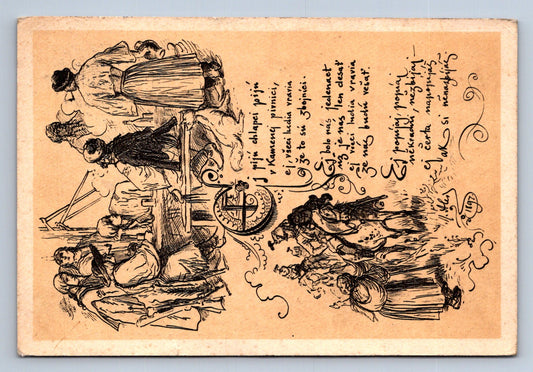 Ej pijú chlapci pijú
v Kamennej pivnici,
ej, všeci ludia vravia
že to sú zbojníci.
Ej bolo nás jedenact
už je nás len desať
ej všeci ludia vravia
že nás budú vešať.
Ej popíjaj popíjaj
nekradni, nezbíjaj –
ej čerta napopíjaš
keď si nenazbíjaš
1897